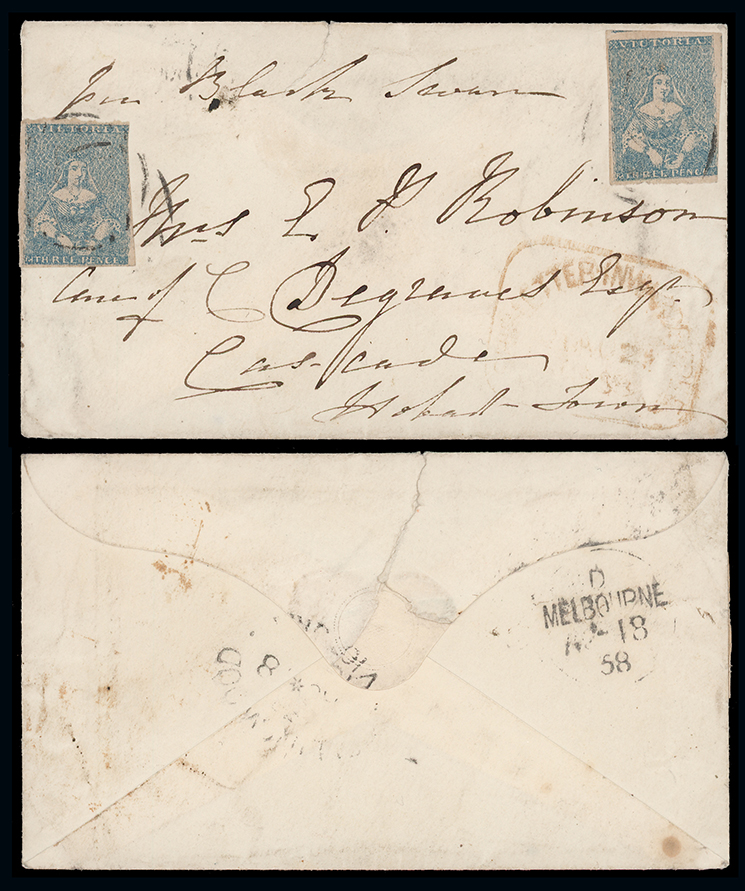 per Black Swan
VICTORIA
THREE PENCE
VICTORIA
THREE PENCE
Mrs E P Robinson
Care of C Degraves Esqr.
Cascade
Hobart Town
D
MELBOURNE
18
58